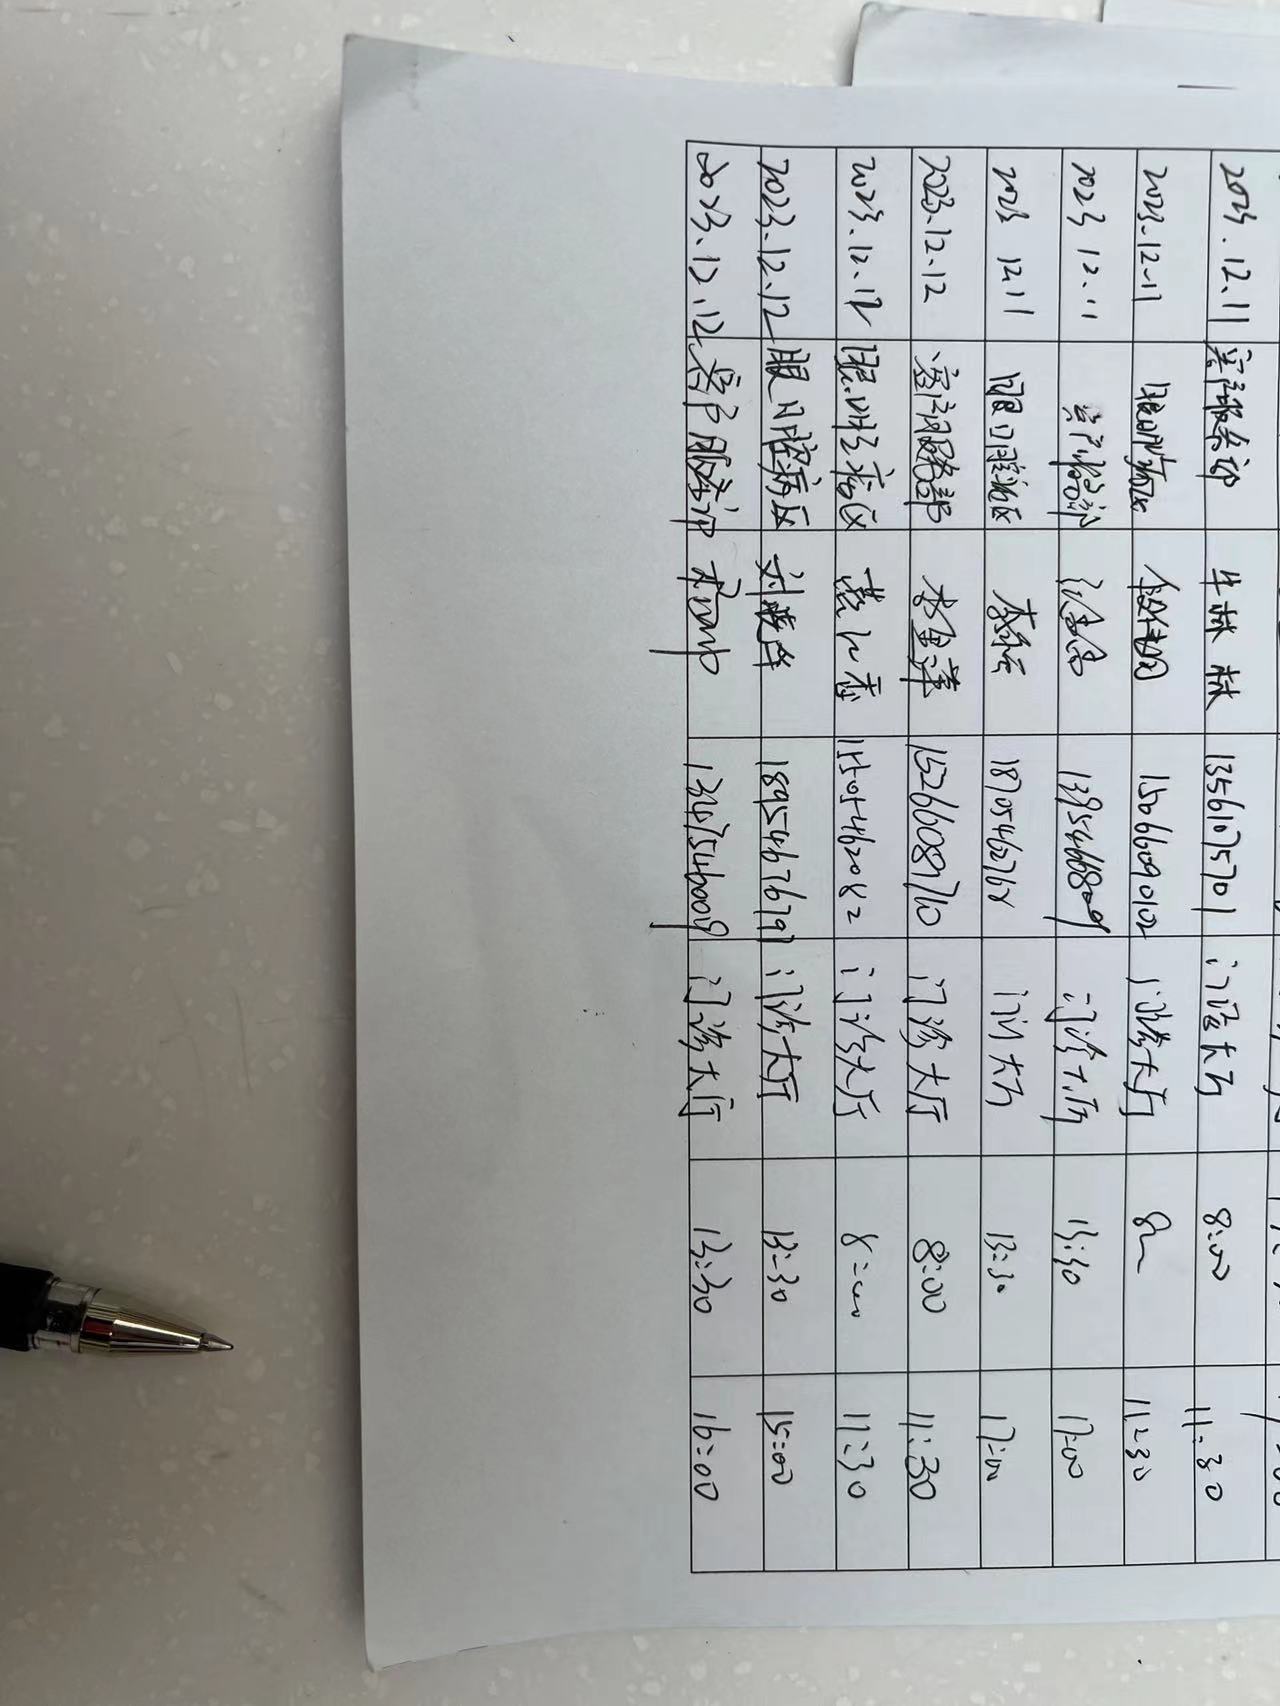 2023.12.11 客户服务部 牛林林 13561075701 门诊大厅 8:00 11:30
2023.12.11 15066090102 门诊大厅 11:30
2023 12.11 客户服务部 13954668809 门诊大厅 13:30 17:00
2023 12.11 眼口腔病区 李 18705462768 门诊大厅 13:30 17:00
2023.12.12 客户服务部 李金泽 15266081710 门诊大厅 8:00 11:30
2023.12.12 病区 15054462082 门诊大厅 8:00 11:30
2023.12.12 眼口腔病区 刘晓华 18954676797 门诊大厅 13:30 15:00
2023.12.12 客户服务部 13475460009 门诊大厅 13:30 16:00